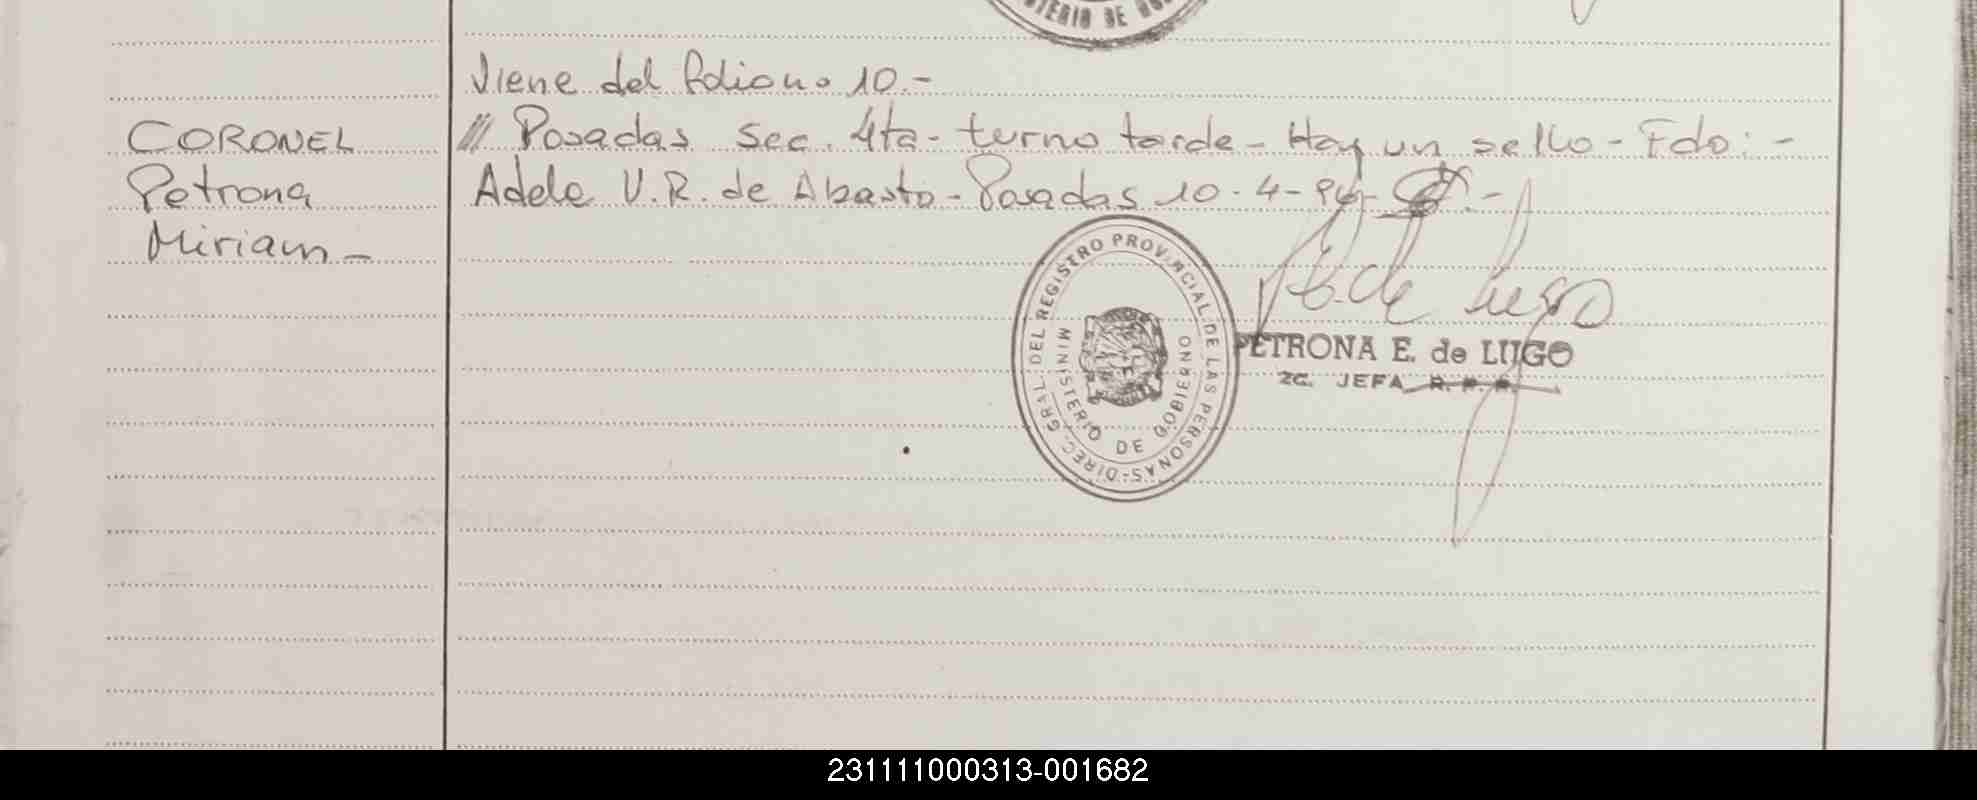 CORONEL
Petrona
Miriam -
Viene del folio no 10.-
/// Posadas Sec. 4ta - turno tarde - Hay un sello - Fdo: -
Adela V. R. de Abasto - Posadas 10 - 4 -
DIREC. GRAL. DEL REGISTRO PROVINCIAL DE LAS PERSONAS -
MINISTERIO DE GOBIERNO
P. E. de Lugo
PETRONA E. de LUGO
2C. JEFA R. P. P.
231111000313-001682